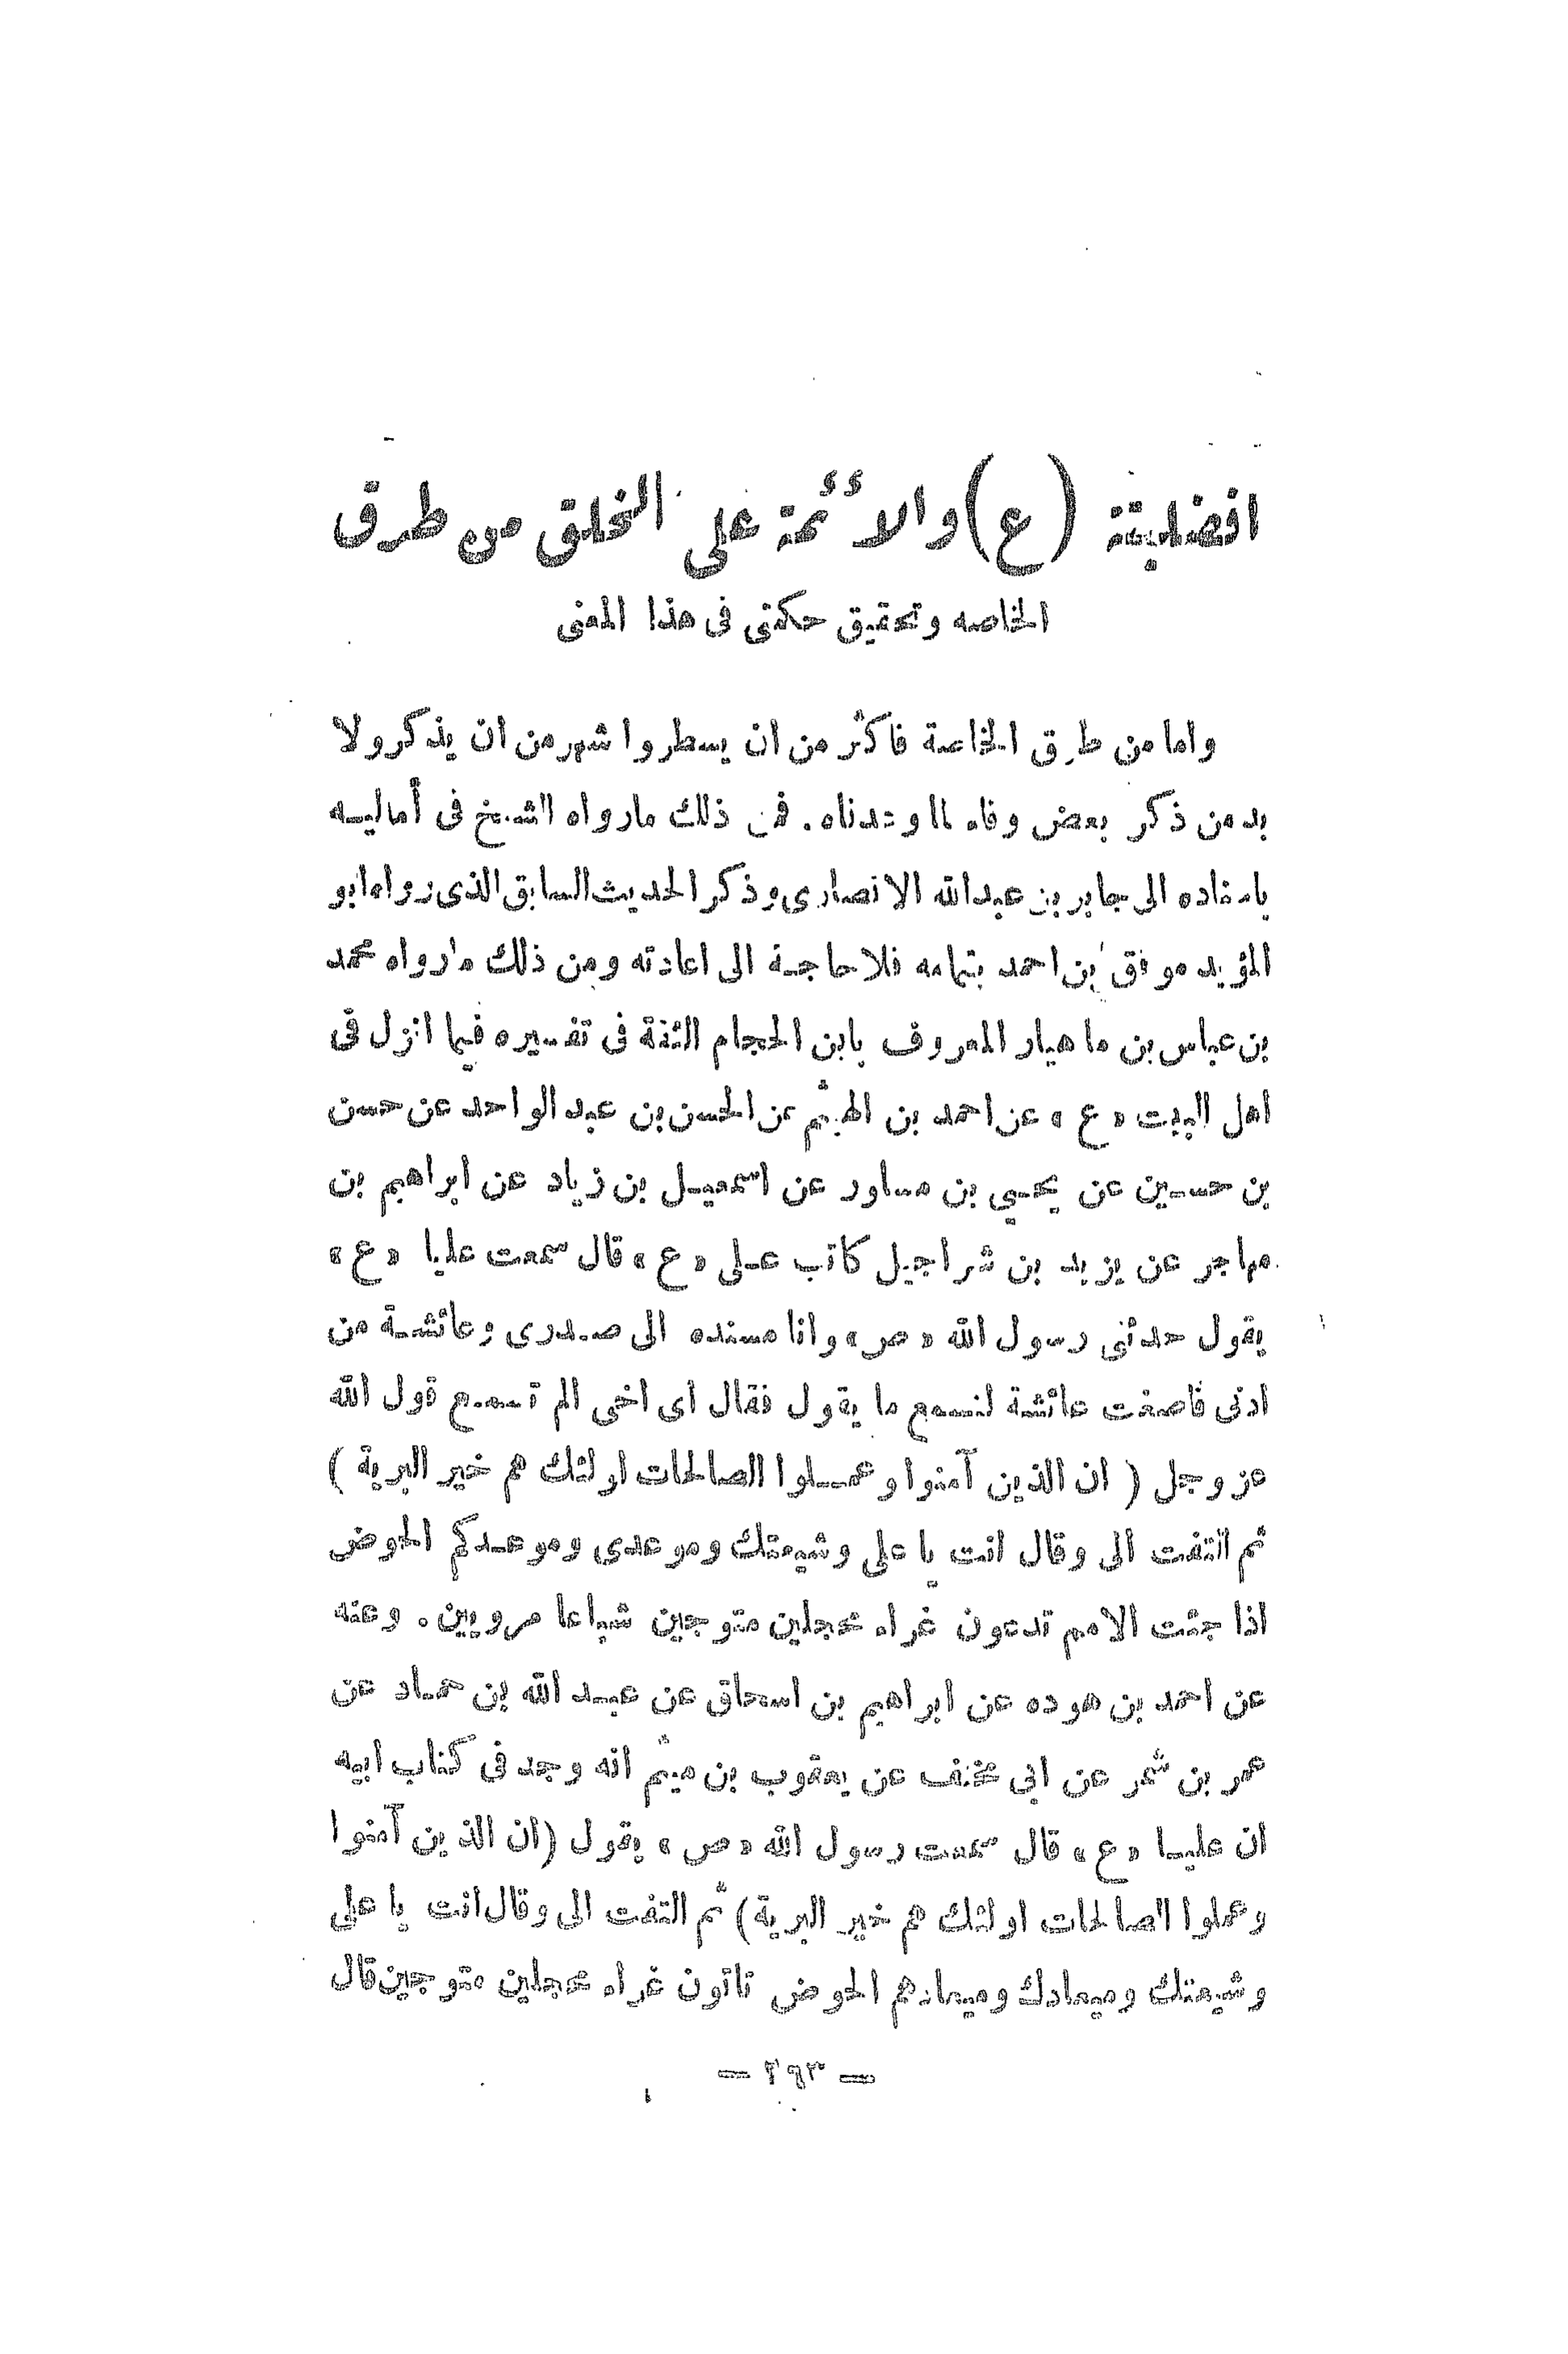 افضلية (ع) والأئمة على الخلق من طرق
الخاصه وتحقيق حكمتى فى هذا المعنى
واما من طرق الخاصة فاكثر من ان يسطر واشهر من ان يذكر ولا
بد من ذكر بعض وفاء لما وعدناه . فمن ذلك مارواه الشيخ فى أماليـه
باسناده الى جابر بن عبدالله الانصارى وذكر الحديث السابق الذى رواه ابو
المؤيد موفق بن احمد بتمامه فلا حاجـة الى اعادته ومن ذلك مارواه محمد
بن عباس بن ماهيار المعروف بابن الحجام الثقة فى تفسيره فيما انزل فى
اهل البيت « ع » عن احمد بن الهيثم عن الحسن بن عبد الواحد عن حسن
بن حسـين عن يحـيي بن مساور عن اسمعيـل بن زياد عن ابراهيم بن
مهاجر عن يزيد بن شراجيل كاتب عـلى « ع » قال سمعت عليا « ع »
يقول حدثنى رسول الله « ص » وانا مسنده الى صـدرى وعائشـة من
اذنى فاصغت عائشة لتسمع ما يقول فقال اى اخى الم تسمـع قول الله
عز وجل ( ان الذين آمنوا وعمـلوا الصالحات اولئك هم خير البرية )
ثم التفت الى وقال انت يا على وشيعتك وموعدى وموعـدكم الحوض
اذا جئت الامم تدعون غراء محجلين متوجين شباعا مرويين . وعنه
عن احمد بن هوده عن ابراهيم بن اسحاق عن عبـد الله بن حمـاد عن
عمر بن شمر عن ابى مخنف عن يعقوب بن ميثم انه وجد فى كتاب ابيه
ان عليـا « ع » قال سمعت رسول الله « ص » يقول (ان الذين آمنوا
وعملوا الصالحات اولئك هم خير البرية) ثم التفت الى وقال انت يا على
وشيعتك وميعادك وميعادهم الحوض تاتون غراء محجلين متوجين قال
— ٢٩٣ —